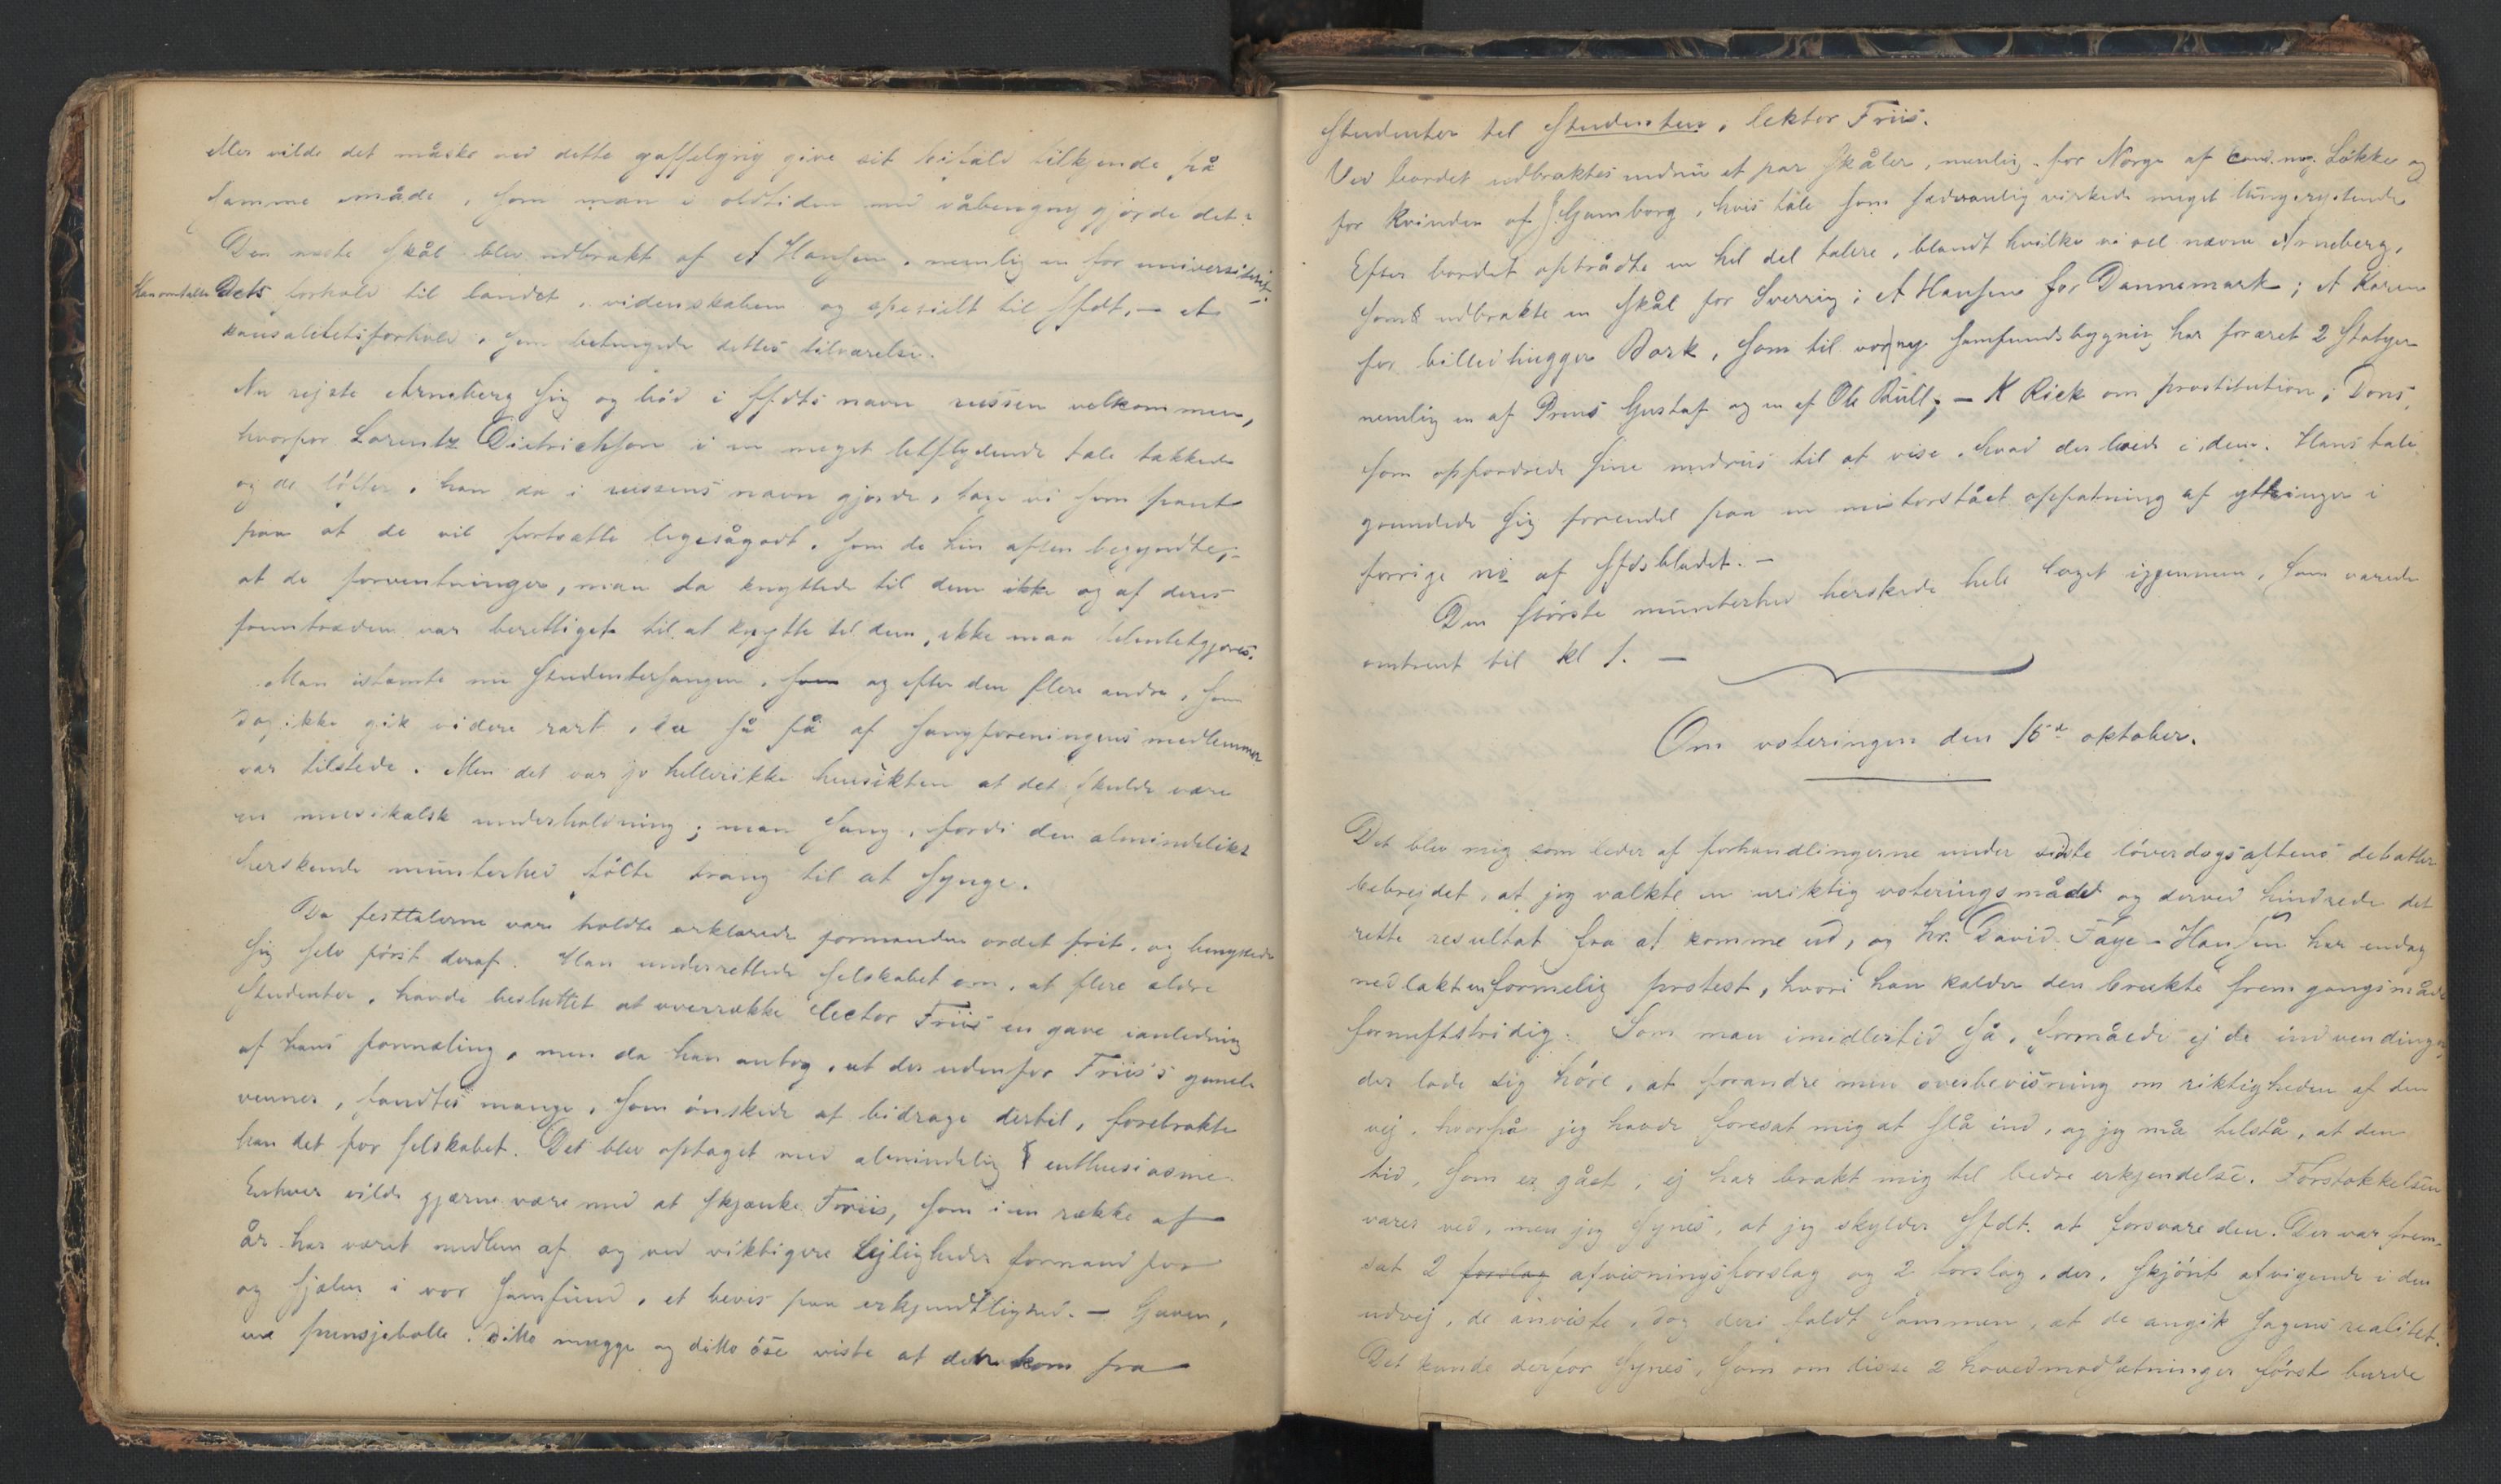 eller vilde det måske ved dette gaffelgny give sit bifald tilkjende på
samme måde, som man i oldtiden med våbengny gjorde det?
Den næste skål blev udbrakt af A Hansen, nemlig en for universitetet.
Han omtalte Dets forhold til landet, videnskaben og specielt til Sfdt, – et
kausalitetsforhold, som betingede dettes tilværelse.
Nu rejste Arneberg sig og bød i Sfdts navn russen velkommen,
hvorfor Lorentz Dietrichson i en meget letflydende tale takkede
og de løfter, han da i russens navn gjorde, tage vi som pant
paa at de vil fortsætte ligesågodt, som de hin aften begyndte, –
at de forventninger, man da knyttede til dem ikke og af deres
fremtræden var berettiget til at knytte til dem, ikke maa tilintetgjøres.
Man istemte nu Studentersangen, som og efter den flere andre, som
dog ikke gik videre rart, da så få af sangforeningens medlemmer
var tilstede. Men det var jo hellerikke hensikten at det skulde være
en musikalsk underholdning; man sang, fordi den almindelike
herskende munterhed følte trang til at synge.
Da festtalerne vare holdte erklærede formanden ordet frit, og benyttede
sig selv først deraf. Han underrettede selskabet om, at flere eldre
studenter, havde besluttet at overrække lector Friis en gave ianledning
af hans formæling, men da han antog, at der udenfor Friis's gamle
venner, fandtes mange, som ønskede at bidrage dertil, forebrakte
han det for selskabet. Det blev optaget med almindelig enthusiasme.
Enhver vilde gjærne være med at skjænke Friis, som i en række af
år har været medlem af og ved viktigere lejligheder formand for
og sjælen i vor samfund, et bevis paa erkjendtlighed. – Gaven,
en punsjebolle, ditto mugge og ditto øse viste at den kom fra
Studenter til Studenten, lektor Friis.
Ved bordet udbraktes endnu et par skåler, nemlig for Norge af Cand. mag. Løkke og
for Kvinden af J Gamborg, hvis tale som sædvanlig virkede meget lungerystende
Efter bordet optrådte en hel del talere, blandt hvilke vi vil nævne Arneberg,
som udbrakte en skål for Sverrig; A Hansen for Dannemark; A Karen
for billedhugger Bork, som til vor ny samfundsbygning har foræret 2 statyer
nemlig en af Prins Gustaf og en af Ole Bull; – K Rick om prostitution; Dons,
som opfordrede sine medrus til at vise, hvad der boede i dem. Hans tale
grundede sig forendel paa en misforstået opfatning af ytringer i
forrige no af Sfdsbladet. –
Den største munterhed herskede hele laget igjennem, som varede
omtrent til kl 1. –
Om voteringen den 15de oktober.
Det blev mig som leder af forhandlingerne under sidste løverdagsaftens debatter
bebrejdet, at jeg valkte en uriktig voteringsmåde og derved hindrede det
rette resultat fra at komme ud, og hr. David Faye-Hansen har endog
nedlakt en formelig protest, hvori han kalder den brukte fremgangsmåde
fornuftstridig. Som man imidlertid så, formåede ej de indvendinger,
der lode sig høre, at forandre min overbevisning om riktigheden af den
vej, hvorpå jeg havde foresat mig at slå ind, og jeg må tilstå, at den
tid, som er gået, ej har brakt mig til bedre erkjendelse. Forstokkelsen
varer ved, men jeg synes, at jeg skylder Sfdt. at forsvare den. Der var frem-
sat 2 forslag afvisningsforslag og 2 forslag, der, skjønt afvigende i den
udvej, de anviste, dog deri faldt sammen, at de angik sagens realitet.
Det kunde derfor synes, som om disse 2 hovedmodsætninger først burde